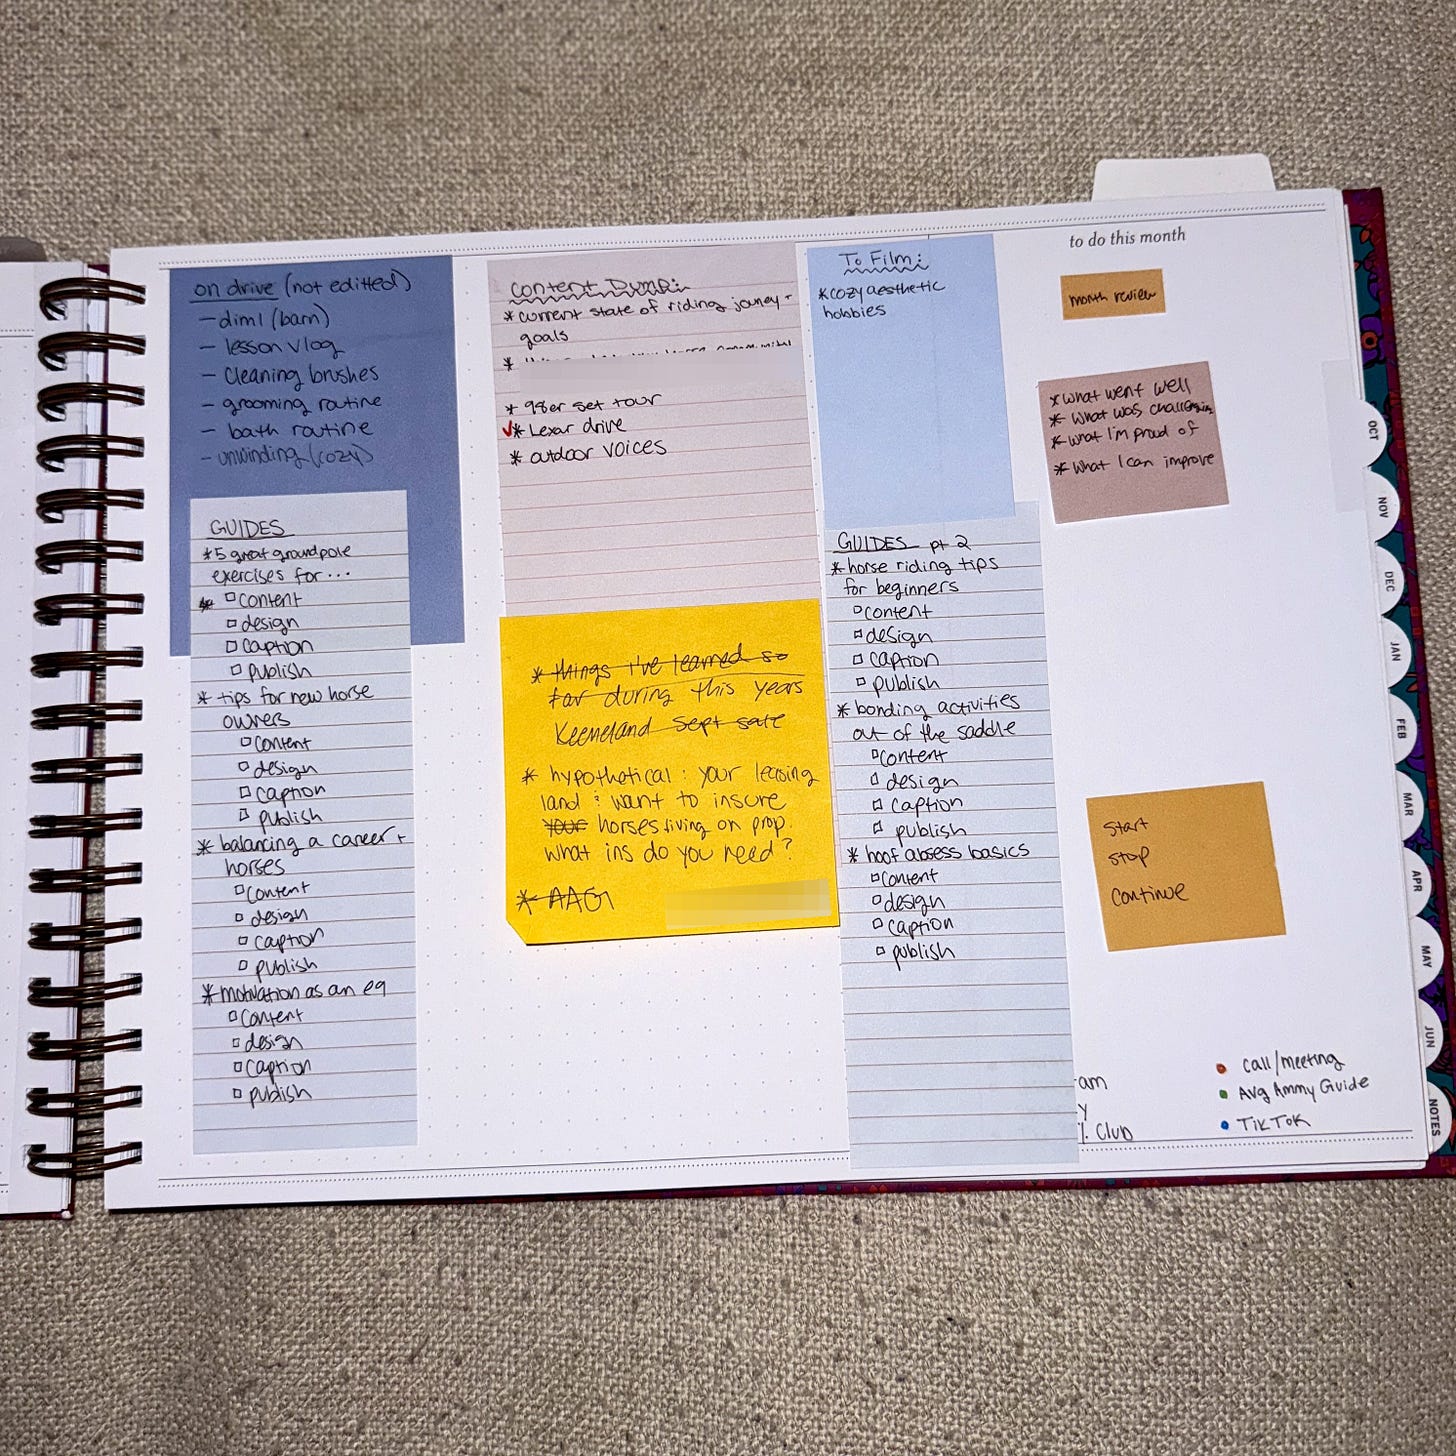 on drive (not editted)
- diml (barn)
- lesson vlog
- cleaning brushes
- grooming routine
- bath routine
- unwinding (cozy)
GUIDES
* 5 great groundpole
exercises for...
* □ content
□ design
□ caption
□ publish
* tips for new horse
owners
□ content
□ design
□ caption
□ publish
* balancing a career +
horses
□ content
□ design
□ caption
□ publish
* motivation as an eq
□ content
□ design
□ caption
□ publish
content
* current state of riding jouney -
goals
*
* 98er set tour
✓* Lexar drive
* outdoor voices
* things i've learned so
far during this years
Keeneland Sept sale
* hypothetical: your leasing
land : want to insure
your horses living on prop.
what ins do you need?
* AAG
To Film:
* cozy aesthetic
hobbies
GUIDES pt 2
* horse riding tips
for beginners
□ content
□ design
□ caption
□ publish
* bonding activities
out of the saddle
□ content
□ design
□ caption
□ publish
* hoof absess basics
□ content
□ design
□ caption
□ publish
to do this month
month review
* what went well
* what was challenging
* what I'm proud of
* what I can improve
start
stop
continue
am
y
Club
• call/meeting
• Avg Ammy Guide
• TikTok
OCT
NOV
DEC
JAN
FEB
MAR
APR
MAY
JUN
NOTES